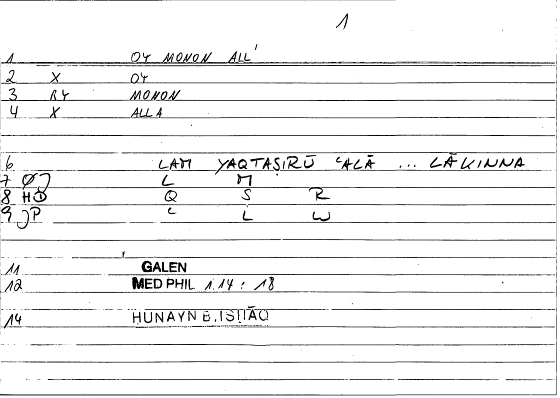 1
1 OY MONON ALL'
2 X OY
3 RY MONON
4 X ALLA
6 LAM YAQTAṢIRŪ ʿALĀ ... LĀKINNA
7 L M
8 Q Ṣ R
9 P ʿ L W
11 GALEN
12 MED PHIL 1.14 : 18
14 ḤUNAYN B. ISḤĀQ